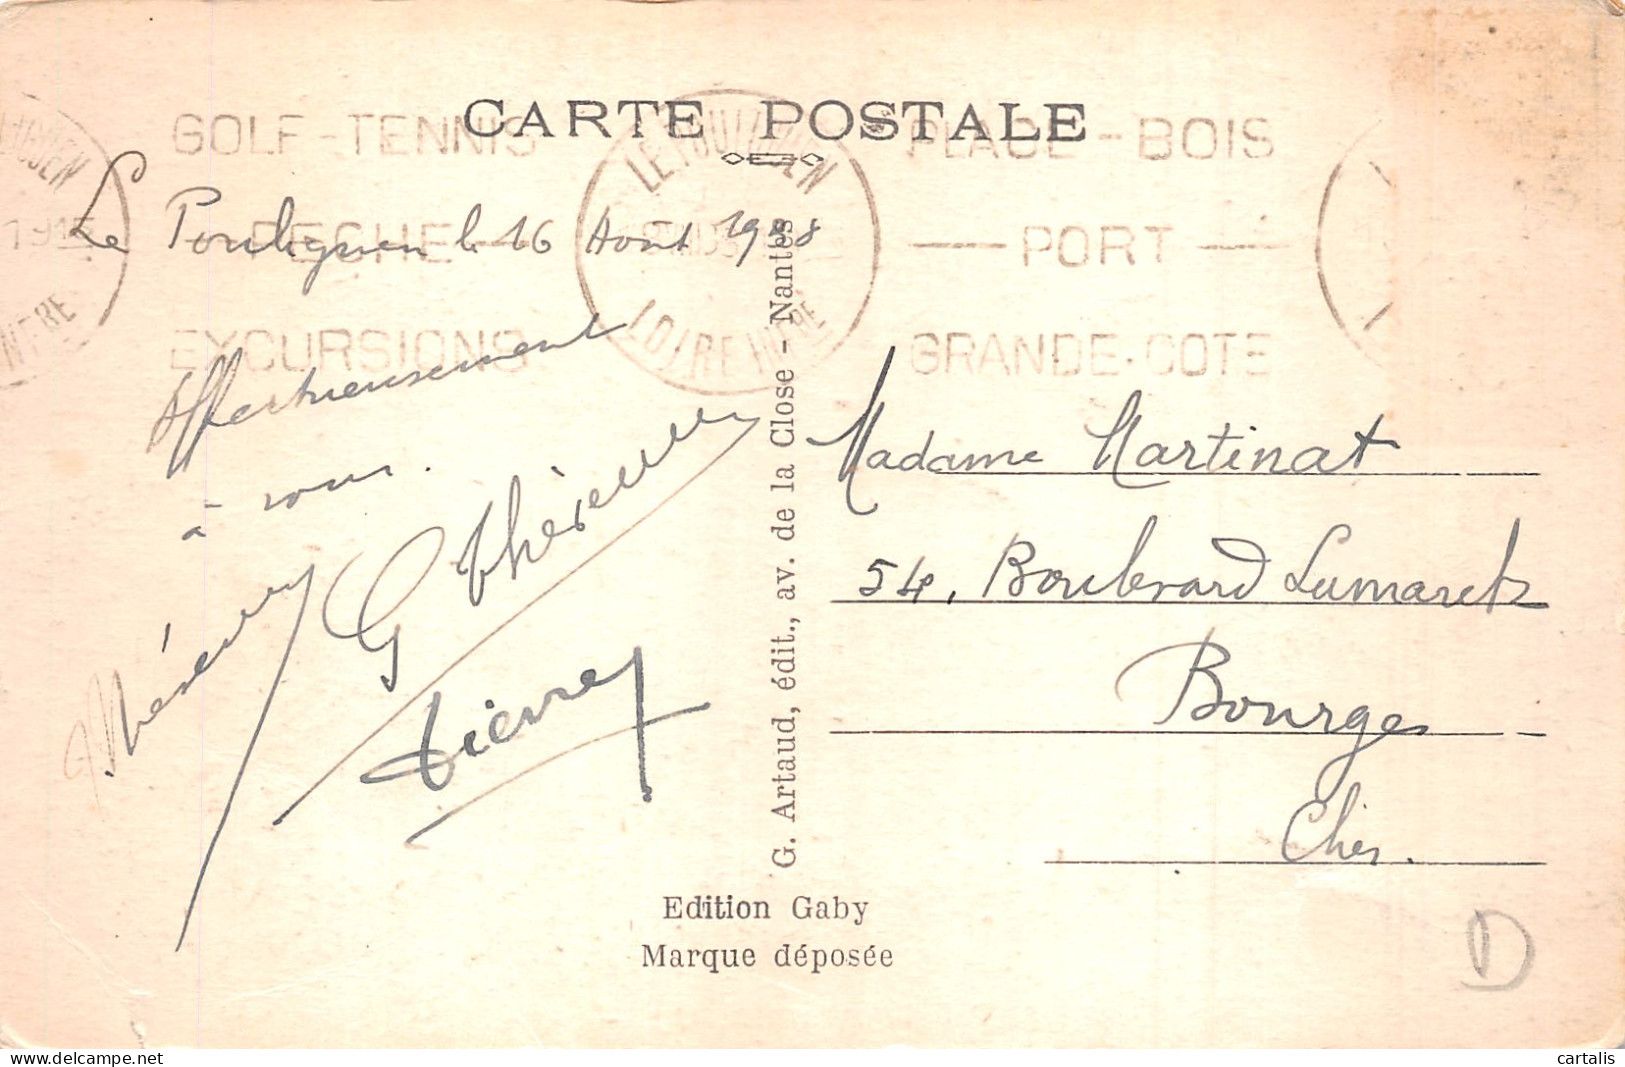 CARTE POSTALE
GOLF-TENNIS
PECHE
EXCURSIONS
LE POULIGUEN
LOIRE INFRE
PLAGE-BOIS
— PORT —
GRANDE-COTE
Le Pouliguen le 16 Août 1938
Affectueusement
à vous.
G Thérèse
Pierre
G. Artaud, édit., av. de la Close - Nantes
Madame Martinat
54, Boulevard Lamarck
Bourges
Cher.
Edition Gaby
Marque déposée
D
cartalis